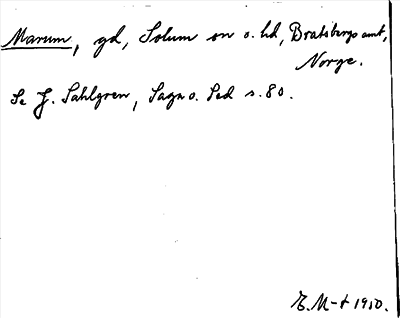 Marum, gd, Solum sn o. hd, Bratsbergs amt,
Norge.
Se J. Sahlgren, Sagn o. Sed s. 80.
E. M-t 1910.